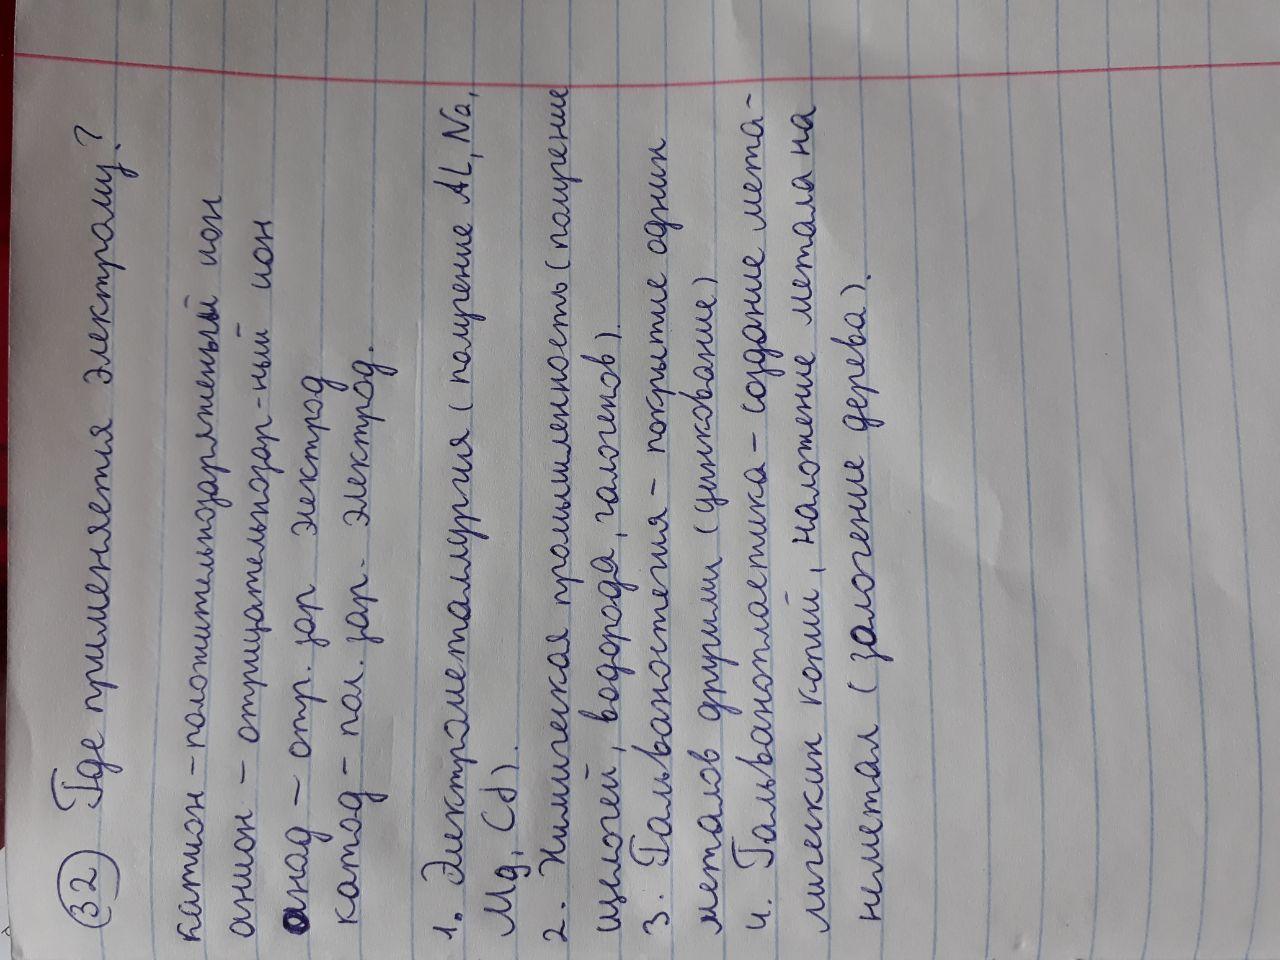 32 Где применяется электролиз?
катион – положительнозаряженый ион
анион – отрицательнозар-ный ион
анод – отр. зар электрод
катод – пол. зар. электрод.
1. Электрометаллургия (получение Al, Na,
Mg, Cd).
2. Химическая промышленность (получение
щелочей, водорода, галогенов).
3. Гальваностегия – покрытие одних
металов другими (цинкование)
4. Гальванопластика – создание мета-
лических копий, наложение метала на
неметал (золочение дерева).